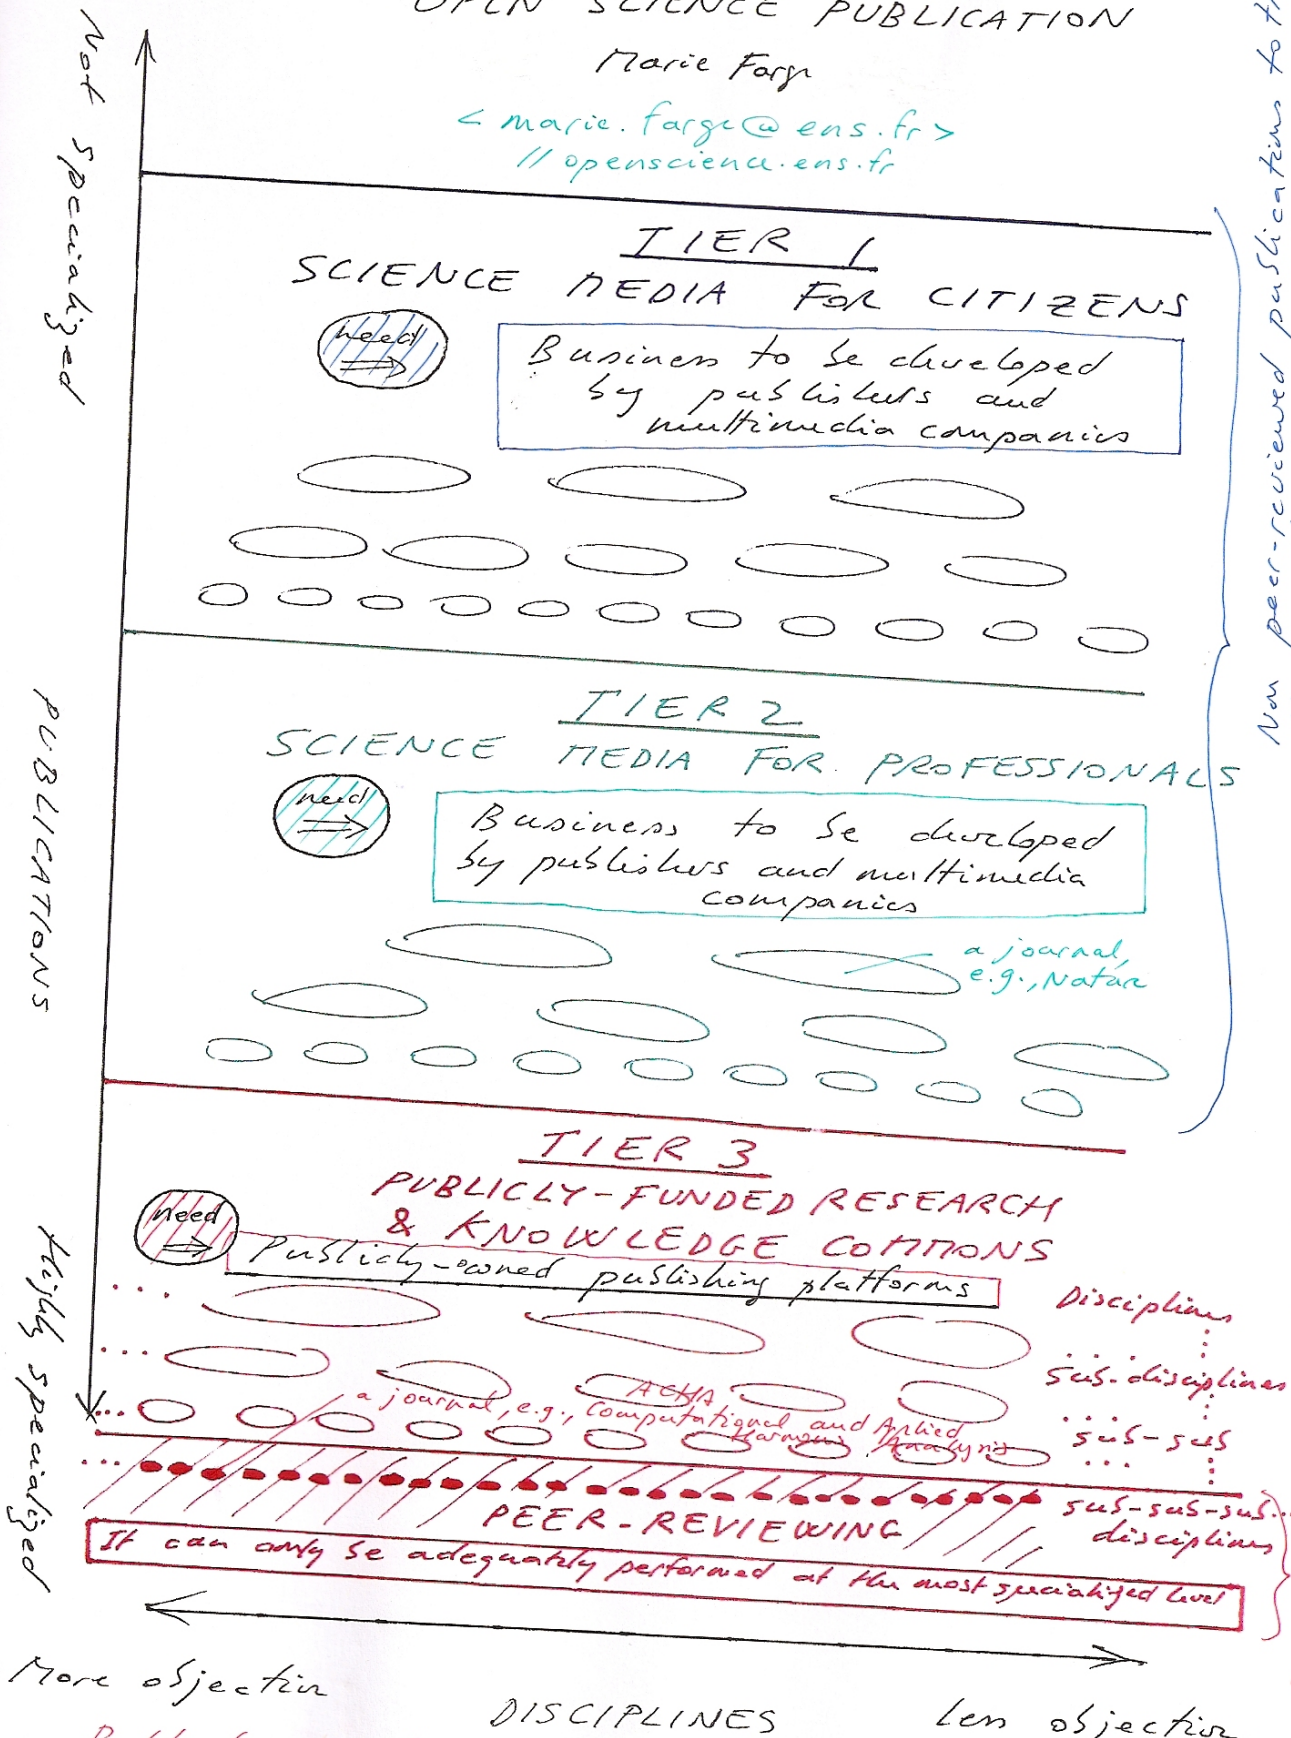 OPEN SCIENCE PUBLICATION
Marie Farge
< marie.farge@ens.fr >
// openscience.ens.fr
Not specialized
PUBLICATIONS
Highly specialized
Non peer-reviewed publications
TIER 1
SCIENCE MEDIA FOR CITIZENS
need
Business to be developed
by publishers and
multimedia companies
TIER 2
SCIENCE MEDIA FOR PROFESSIONALS
need
Business to be developed
by publishers and multimedia
companies
a journal,
e.g., Nature
TIER 3
PUBLICLY-FUNDED RESEARCH
& KNOWLEDGE COMMONS
need
Publicly-owned publishing platforms
Disciplines
sub-disciplines
ACHA
a journal, e.g., Computational and Applied
Harmonic Analysis
sub-sub
sub-sub-sub...
disciplines
PEER-REVIEWING
It can only be adequately performed at the most specialized level
More objective
DISCIPLINES
Less objective